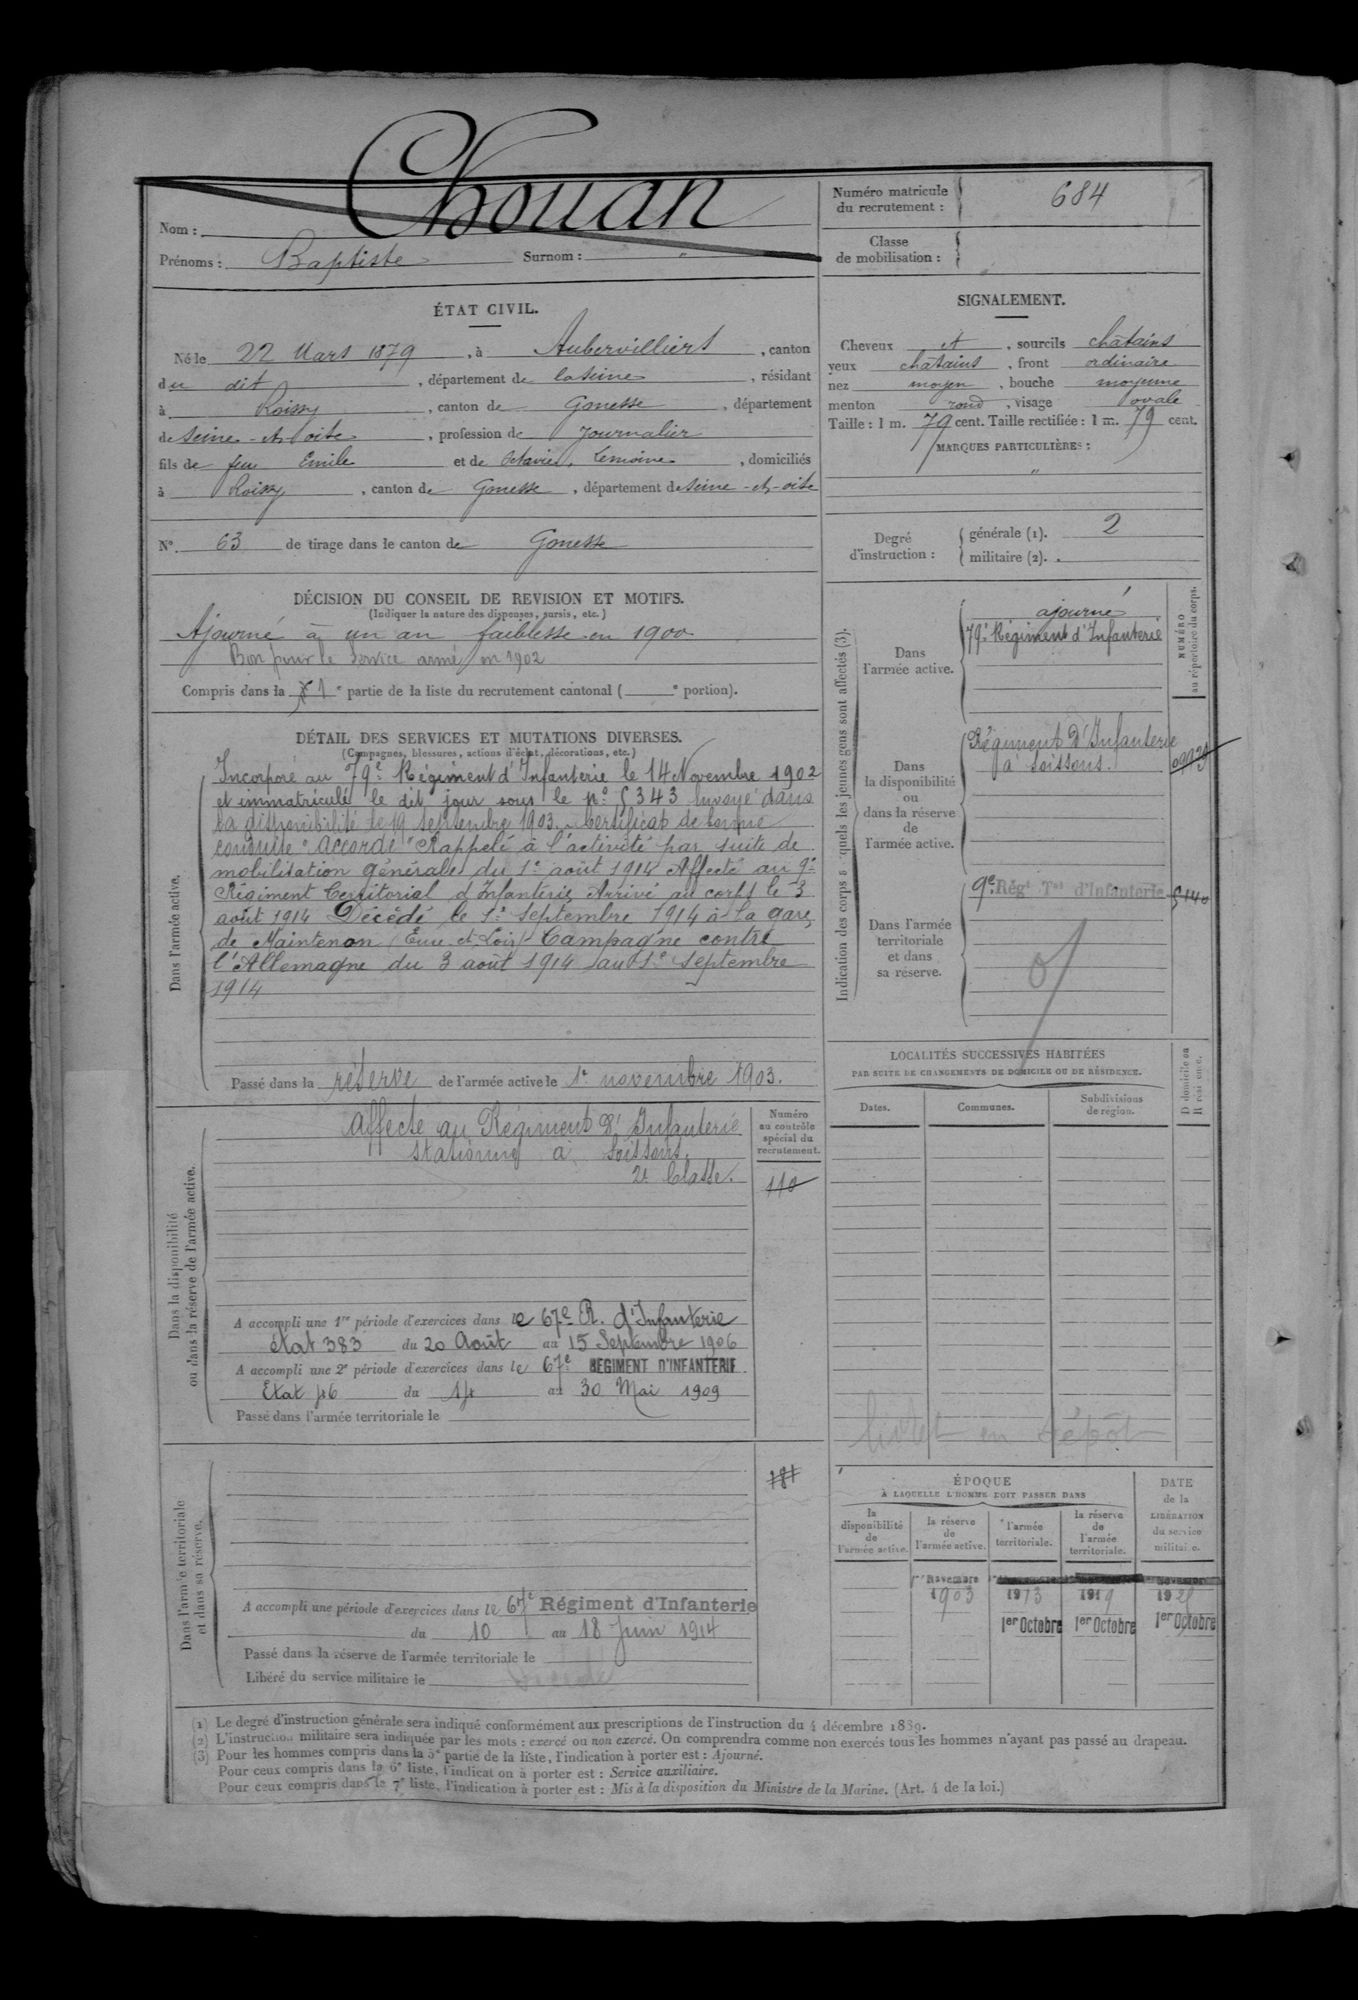 Chouan
Nom :
Prénoms : Baptiste Surnom : "
Numéro matricule du recrutement : 684
Classe de mobilisation :
ÉTAT CIVIL.
Né le 22 Mars 1879, à Aubervilliers, canton
du dit, département de la Seine, résidant
à Roissy, canton de Gonesse, département
de Seine-et-oise, profession de Journalier
fils de feu Emile et de Octavie, Lemoine, domiciliés
à Roissy, canton de Gonesse, département de Seine-et-oise
N° 63 de tirage dans le canton de Gonesse
SIGNALEMENT.
Cheveux et, sourcils châtains
yeux châtains, front ordinaire
nez moyen, bouche moyenne
menton rond, visage ovale
Taille : 1 m. 79 cent. Taille rectifiée : 1 m. 79 cent.
MARQUES PARTICULIÈRES :
"
Degré d'instruction :
générale (1). 2
militaire (2).
DÉCISION DU CONSEIL DE REVISION ET MOTIFS.
(Indiquer la nature des dispenses, sursis, etc.)
Ajourné à un an faiblesse en 1900
Bon pour le Service armé en 1902
Compris dans la 1e partie de la liste du recrutement cantonal ( e portion).
DÉTAIL DES SERVICES ET MUTATIONS DIVERSES.
(Campagnes, blessures, actions d'éclat, décorations, etc.)
Dans l'armée active.
Incorporé au 79e Régiment d'Infanterie le 14 Novembre 1902
et immatriculé le dit jour sous le n° 5343 Envoyé dans
la disponibilité le 19 Septembre 1903. Certificat de bonne
conduite "Accordé" Rappelé à l'activité par suite de
mobilisation générale du 1e août 1914 Affecté au 9e
Régiment Territorial d'Infanterie Arrivé au corps le 3
août 1914 Décédé le 1e Septembre 1914 à la gare
de Maintenon (Eure-et-Loir) - Campagne contre
l'Allemagne du 3 août 1914 au 1e Septembre
1914
Passé dans la réserve de l'armée active le 1e novembre 1903.
Indication des corps auxquels les jeunes gens sont affectés (3).
NUMÉRO au répertoire du corps.
Dans l'armée active.
ajourné
79e Régiment d'Infanterie
Dans la disponibilité ou dans la réserve de l'armée active.
Régiment d'Infanterie
à Soissons.
Dans l'armée territoriale et dans sa réserve.
9e Régt Tal d'Infanterie 5140
LOCALITÉS SUCCESSIVES HABITÉES
PAR SUITE DE CHANGEMENTS DE DOMICILE OU DE RÉSIDENCE.
Dates. Communes. Subdivisions de région. D domicile ou R résidence.
Dans la disponibilité ou dans la réserve de l'armée active.
Numéro au contrôle spécial du recrutement.
Affecté au Régiment d'Infanterie
stationné à Soissons.
2e Classe.
110
A accompli une 1re période d'exercices dans le 67e R. d'Infanterie
état 383 du 20 Août au 15 Septembre 1906
A accompli une 2e période d'exercices dans le 67e RÉGIMENT D'INFANTERIE
Etat 46 du 14 au 30 Mai 1909
Passé dans l'armée territoriale le
livret en dépôt
Dans l'armée territoriale et dans sa réserve.
A accompli une période d'exercices dans le 67e Régiment d'Infanterie
du 10 au 18 Juin 1914
Passé dans la réserve de l'armée territoriale le
Libéré du service militaire le Décédé
ÉPOQUE
À LAQUELLE L'HOMME DOIT PASSER DANS
la disponibilité de l'armée active.
la réserve de l'armée active.
l'armée territoriale.
la réserve de l'armée territoriale.
DATE de la LIBÉRATION du service militaire.
1er Novembre
1903 1913 1919
1er Octobre 1er Octobre 1er Octobre
(1) Le degré d'instruction générale sera indiqué conformément aux prescriptions de l'instruction du 4 décembre 1889.
(2) L'instruction militaire sera indiquée par les mots : exercé ou non exercé. On comprendra comme non exercés tous les hommes n'ayant pas passé au drapeau.
(3) Pour les hommes compris dans la 5e partie de la liste, l'indication à porter est : Ajourné.
Pour ceux compris dans la 6e liste, l'indication à porter est : Service auxiliaire.
Pour ceux compris dans la 7e liste, l'indication à porter est : Mis à la disposition du Ministre de la Marine. (Art. 4 de la loi.)